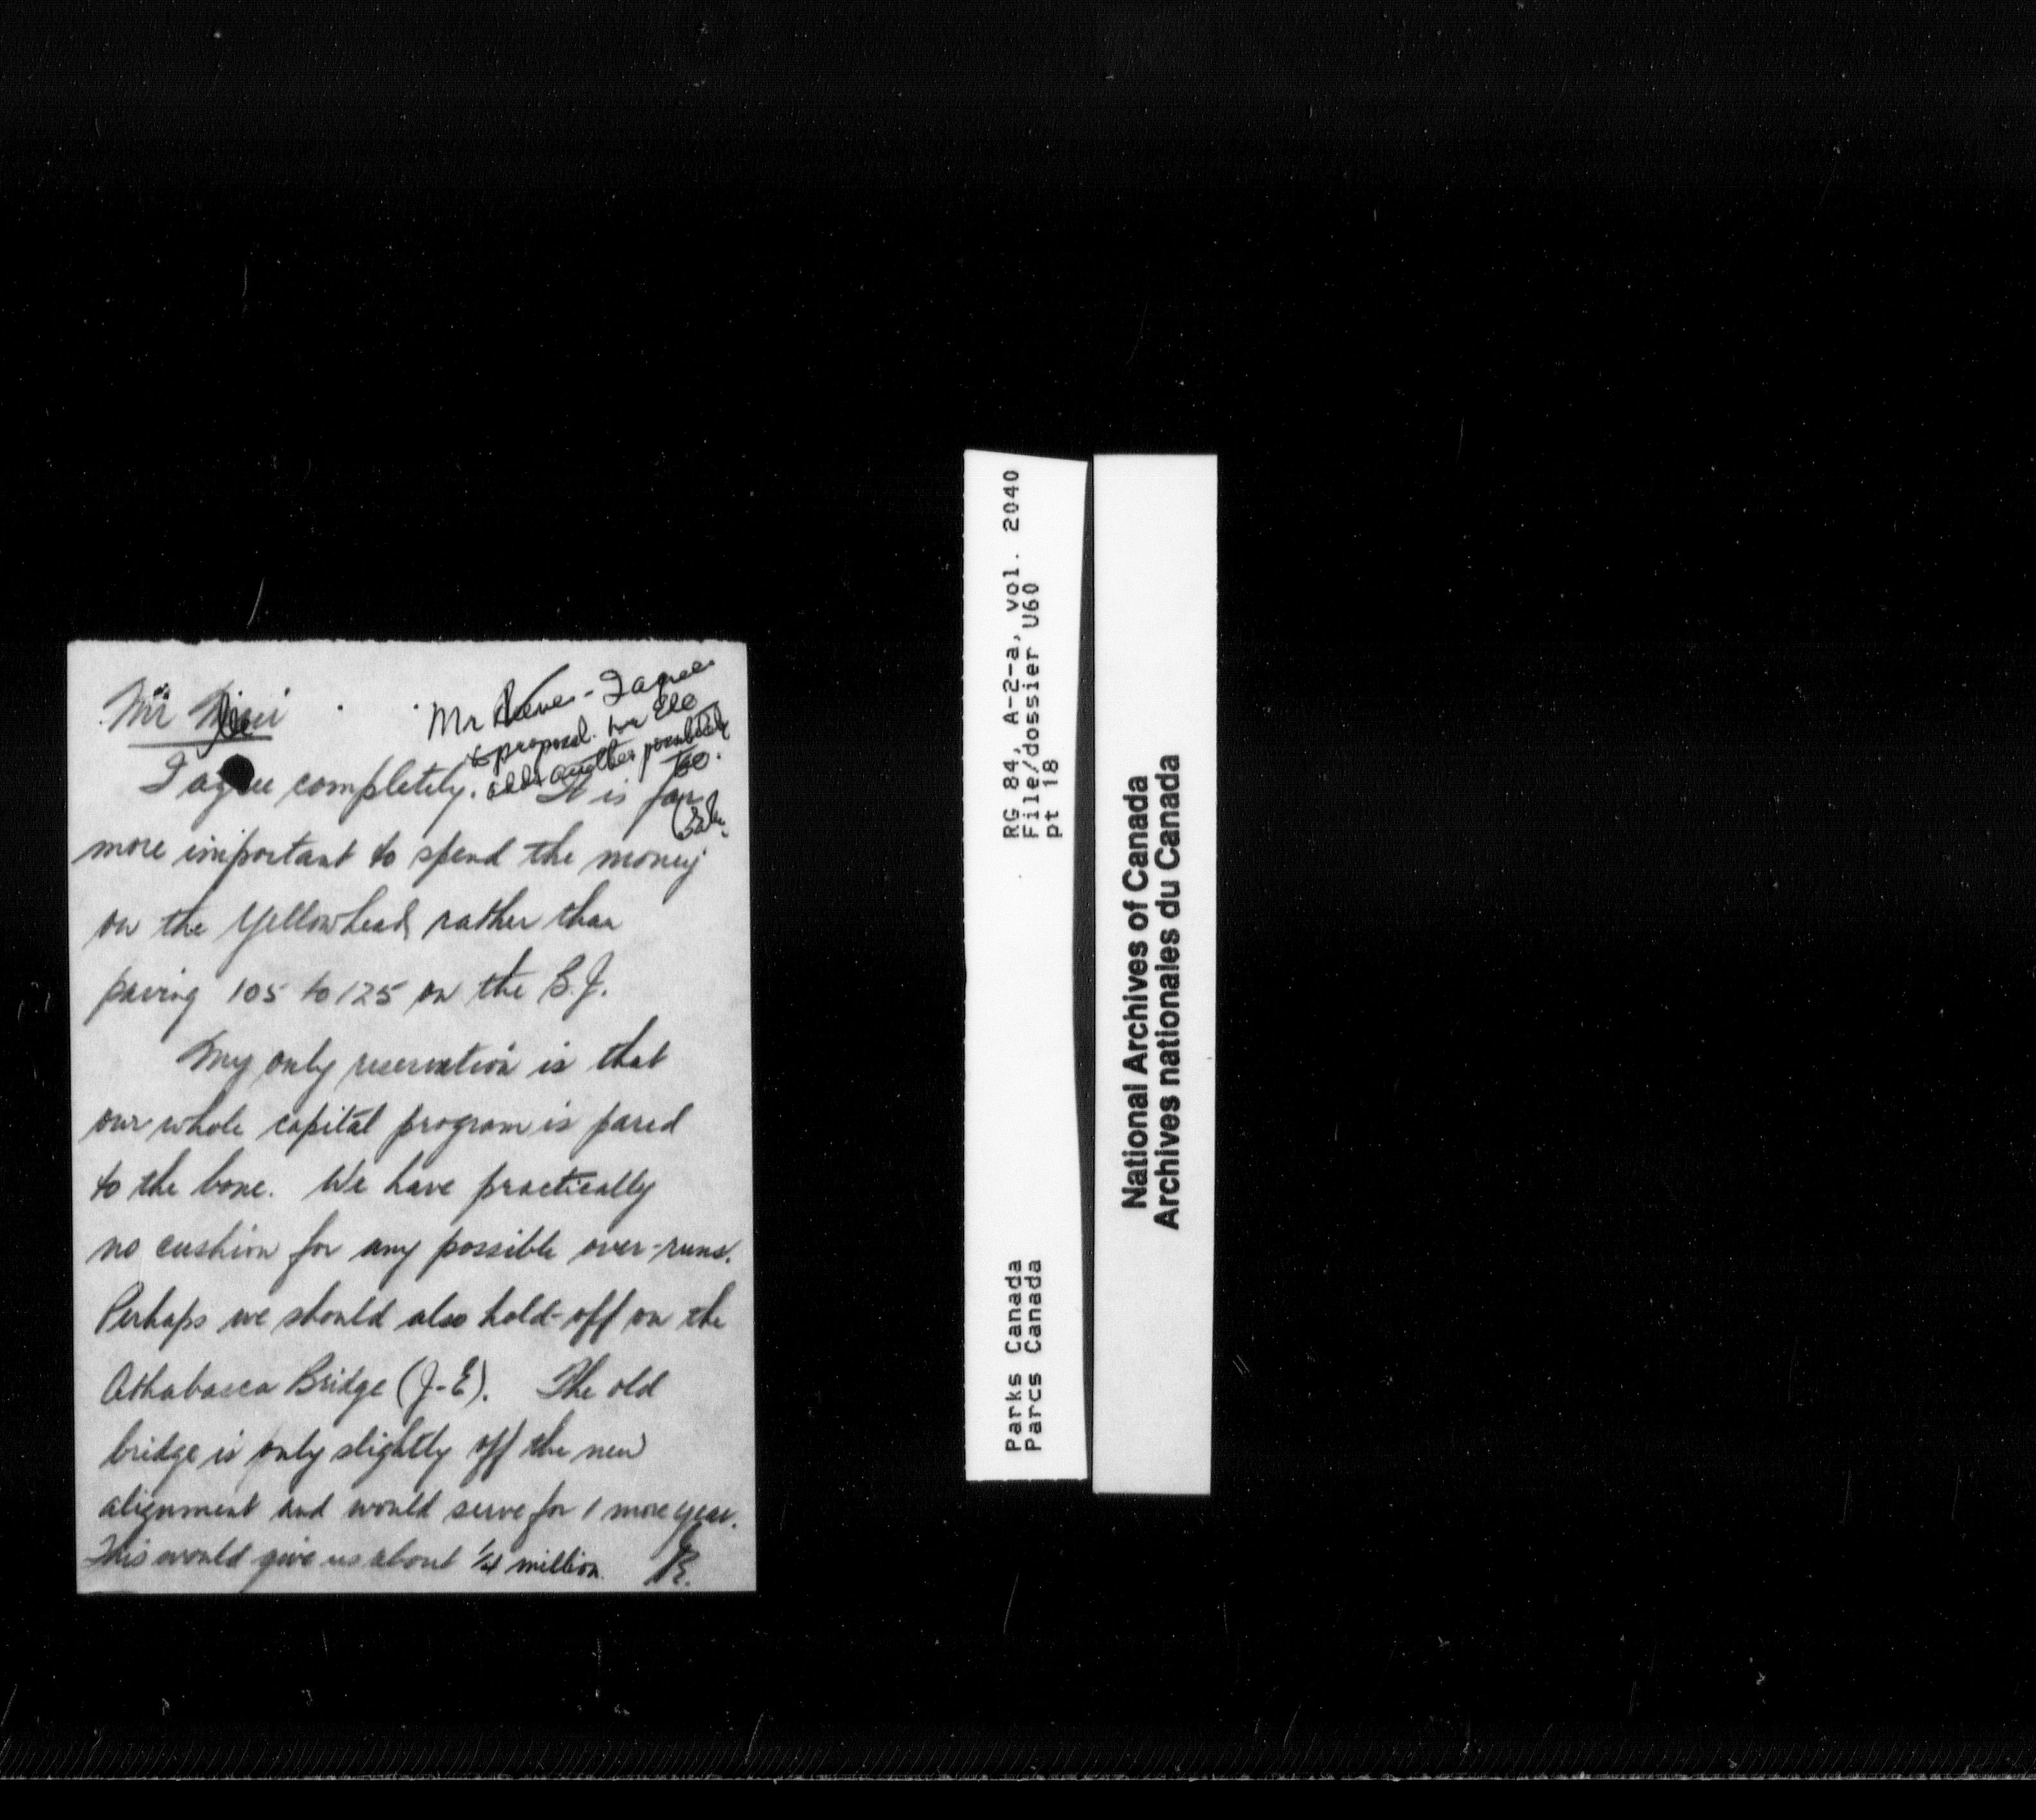 Mr
I agree completely. It is far
more important to spend the money
on the Yellowhead rather than
paving 105 to 125 on the B.J.
My only reservation is that
our whole capital program is pared
to the bone. We have practically
no cushion for any possible over-runs.
Perhaps we should also hold-off on the
Athabasca Bridge (J-E). The old
bridge is only slightly off the new
alignment and would serve for 1 more year.
This would give us about 1/4 million. R.
Mr Reeve - I agree
proposal.
another possibility
too.
RG 84, A-2-a, vol. 2040
File/dossier U60
pt 18
Parks Canada
Parcs Canada
National Archives of Canada
Archives nationales du Canada